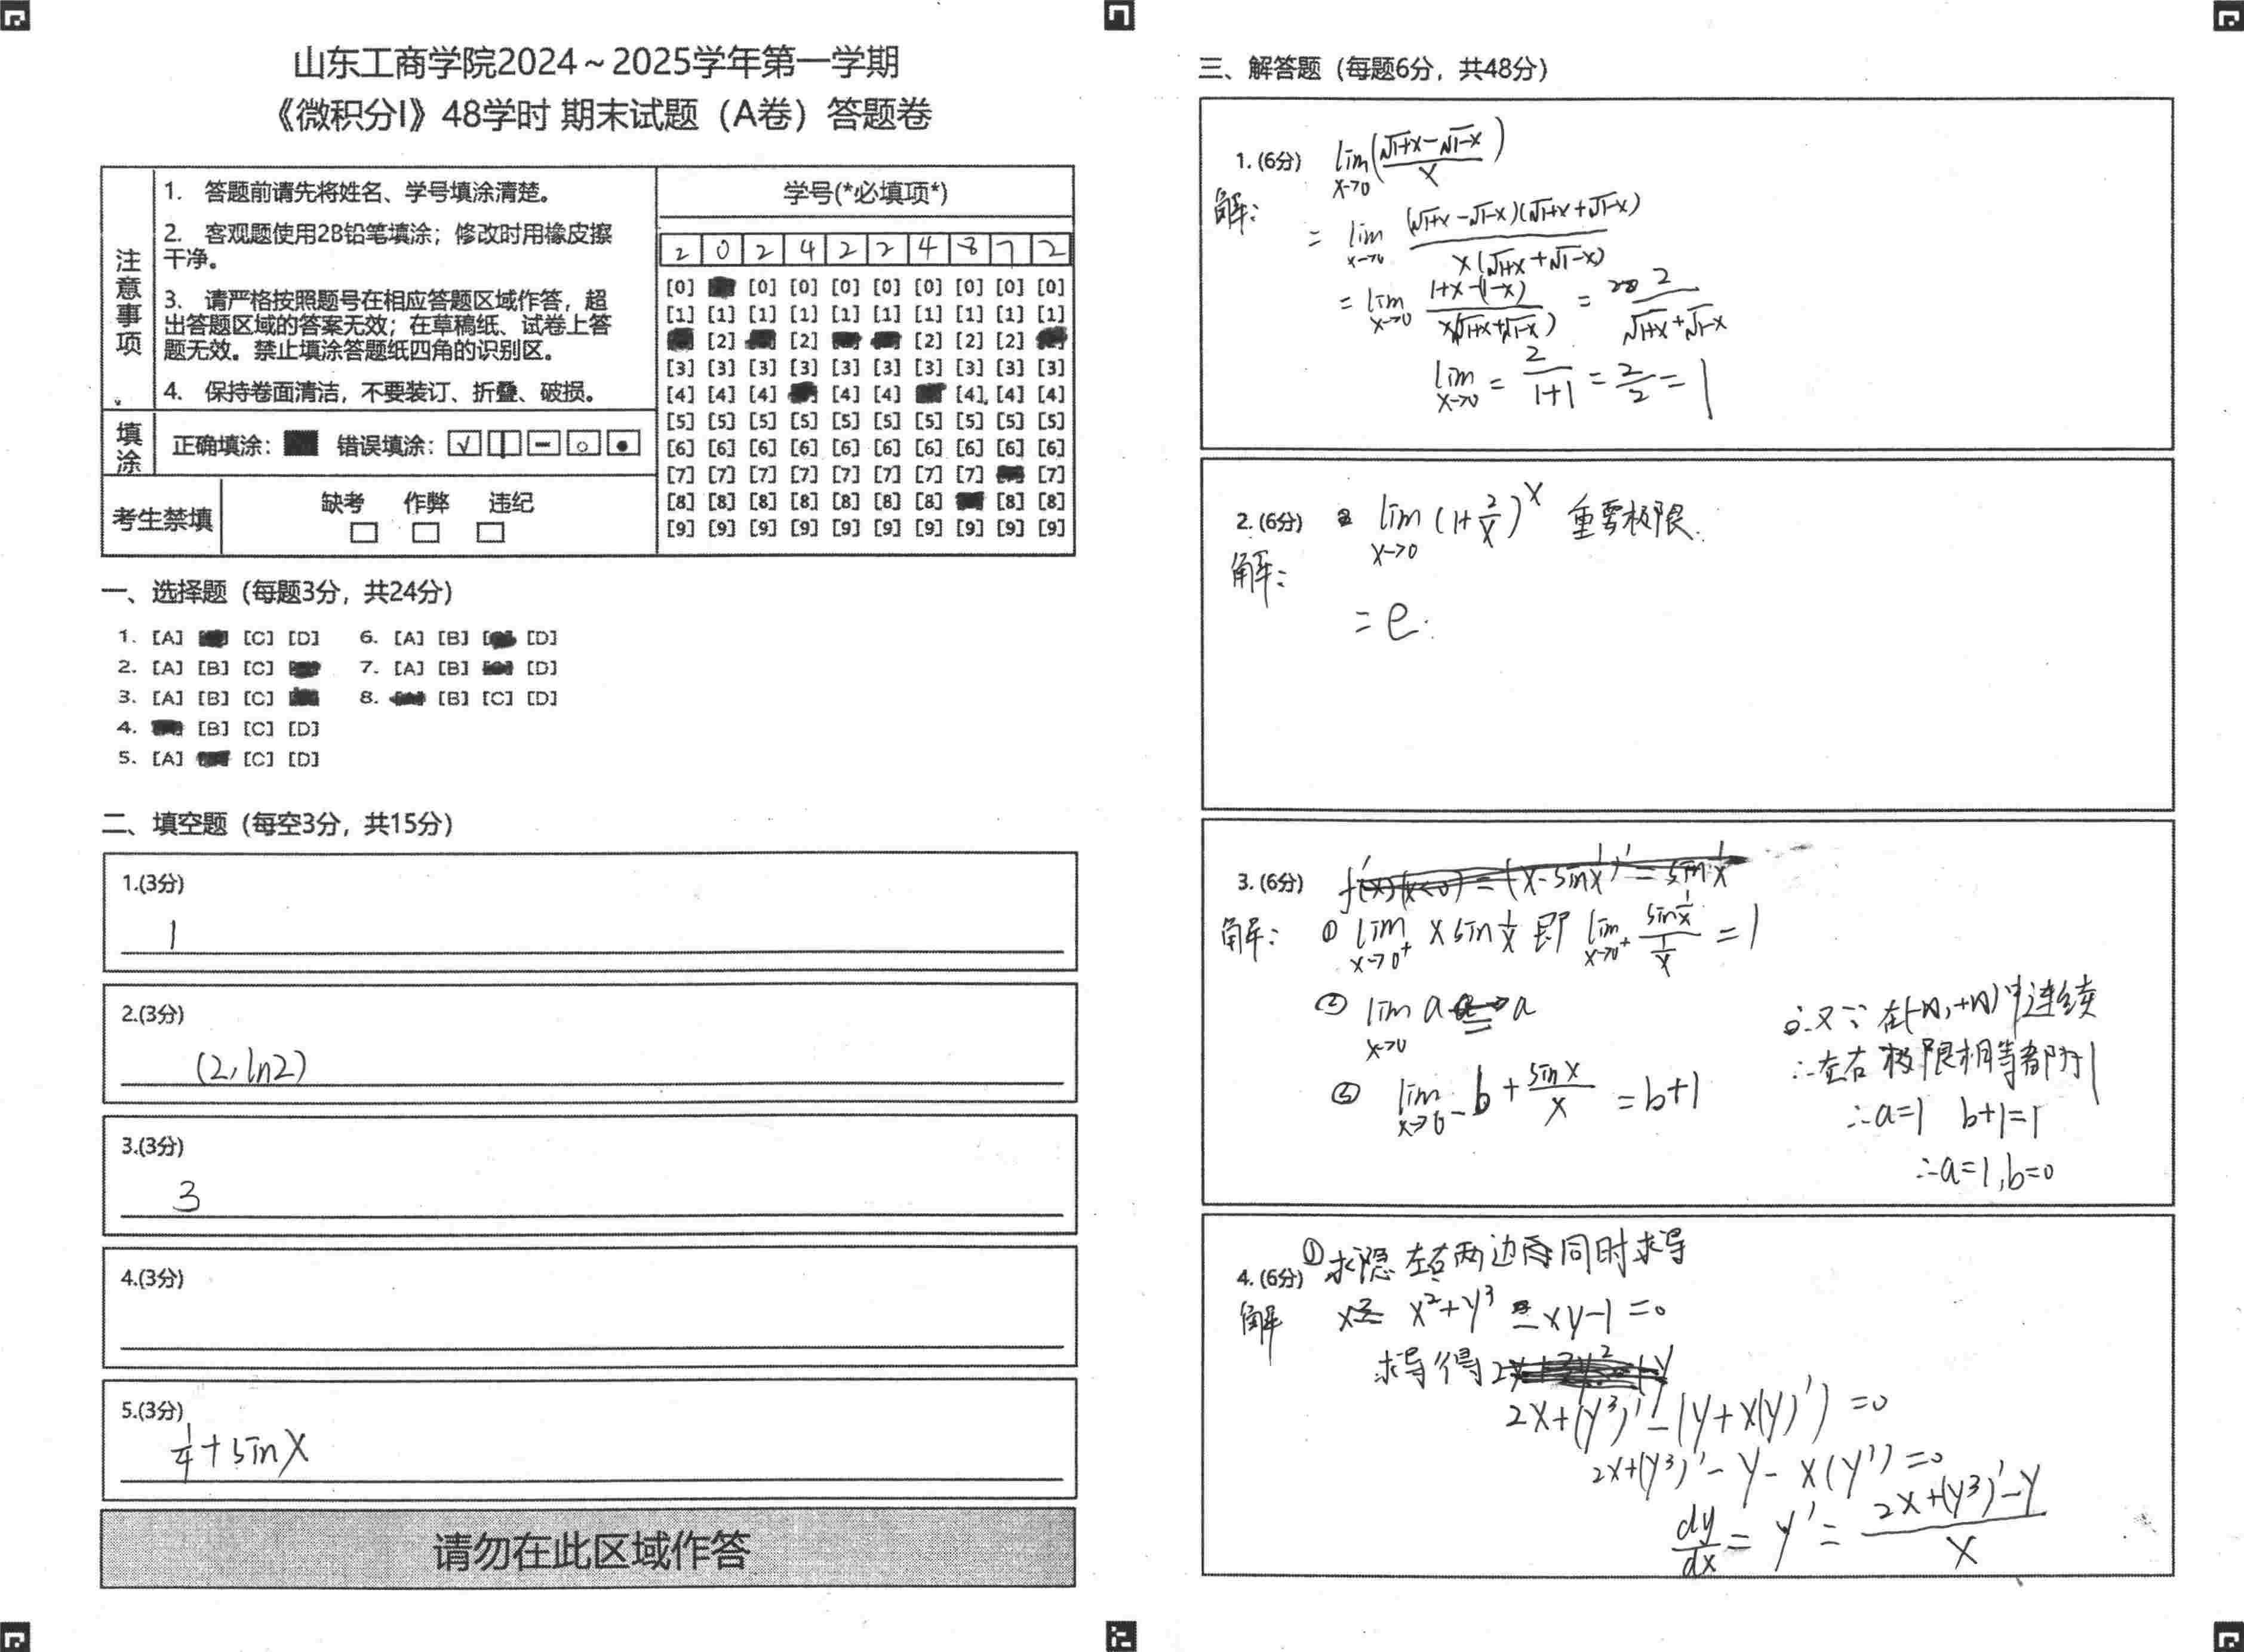 山东工商学院2024～2025学年第一学期
《微积分I》48学时 期末试题（A卷）答题卷
注意事项
1. 答题前请先将姓名、学号填涂清楚。
2. 客观题使用2B铅笔填涂；修改时用橡皮擦
干净。
3. 请严格按照题号在相应答题区域作答，超
出答题区域的答案无效；在草稿纸、试卷上答
题无效。禁止填涂答题纸四角的识别区。
4. 保持卷面清洁，不要装订、折叠、破损。
填涂 正确填涂： 错误填涂：
考生禁填 缺考 作弊 违纪
学号(*必填项*)
2 0 2 4 2 2 4 8 7 2
[0] [0] [0] [0] [0] [0] [0] [0] [0]
[1] [1] [1] [1] [1] [1] [1] [1] [1] [1]
[2] [2] [2] [2] [2]
[3] [3] [3] [3] [3] [3] [3] [3] [3] [3]
[4] [4] [4] [4] [4] [4] [4] [4]
[5] [5] [5] [5] [5] [5] [5] [5] [5] [5]
[6] [6] [6] [6] [6] [6] [6] [6] [6] [6]
[7] [7] [7] [7] [7] [7] [7] [7] [7]
[8] [8] [8] [8] [8] [8] [8] [8] [8]
[9] [9] [9] [9] [9] [9] [9] [9] [9] [9]
一、选择题（每题3分，共24分）
1. [A] [C] [D] 6. [A] [B] [D]
2. [A] [B] [C] 7. [A] [B] [D]
3. [A] [B] [C] 8. [B] [C] [D]
4. [B] [C] [D]
5. [A] [C] [D]
二、填空题（每空3分，共15分）
1.(3分)
1
2.(3分)
(2, ln2)
3.(3分)
3
4.(3分)
5.(3分)
1/4 + sin x
请勿在此区域作答
三、解答题（每题6分，共48分）
1. (6分) lim x→0 (√1+x − √1−x / x)
解：
= lim x→0 (√1+x − √1−x)(√1+x + √1−x) / x(√1+x + √1−x)
= lim x→0 1+x−(1−x) / x(√1+x + √1−x) = 2 / √1+x + √1−x
lim x→0 = 2/1+1 = 2/2 = 1
2. (6分) lim x→0 (1+2/x)^x 重要极限.
解：
= e.
3. (6分)
解： ① lim x→0⁺ x sin 1/x 即 lim x→0⁺ sin 1/x / 1/x = 1
② lim x→0 a = a
③ lim x→0− b + sin x / x = b+1
∴又∵在(-∞,+∞)中连续
∴左右极限相等都为1
∴a=1 b+1=1
∴a=1, b=0
4. (6分) ①求隐 左右两边同时求导
解 x² + y³ − xy − 1 = 0
求导得
2x + (y³)' − (y + x(y)') = 0
2x + (y³)' − y − x(y') = 0
dy/dx = y' = 2x + (y³)' − y / x